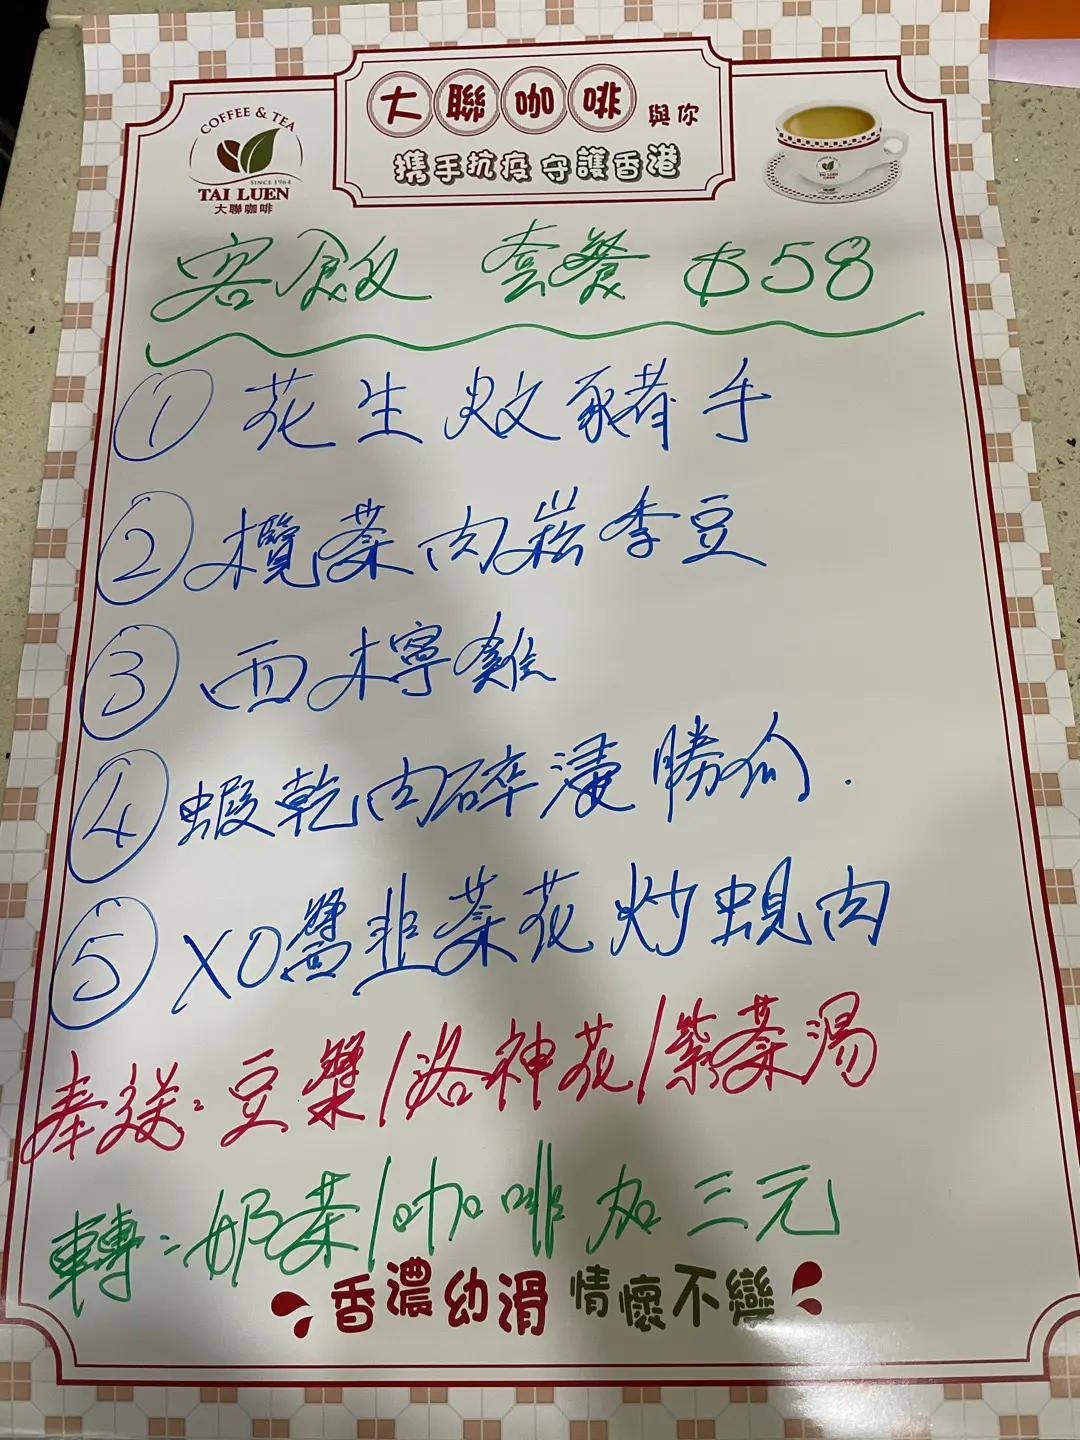 COFFEE & TEA
SINCE 1964
TAI LUEN
大聯咖啡
大聯咖啡與你
攜手抗疫 守護香港
COFFEE & TEA
TAI LUEN
客飯 套餐 $58
① 花生炆豬手
② 欖菜肉崧季豆
③ 西檸雞
④ 蝦乾肉碎浸勝瓜.
⑤ XO醬韭菜花炒蜆肉
奉送:豆漿/洛神花/紫菜湯
轉:奶茶/咖啡加三元
香濃幼滑 情懷不變